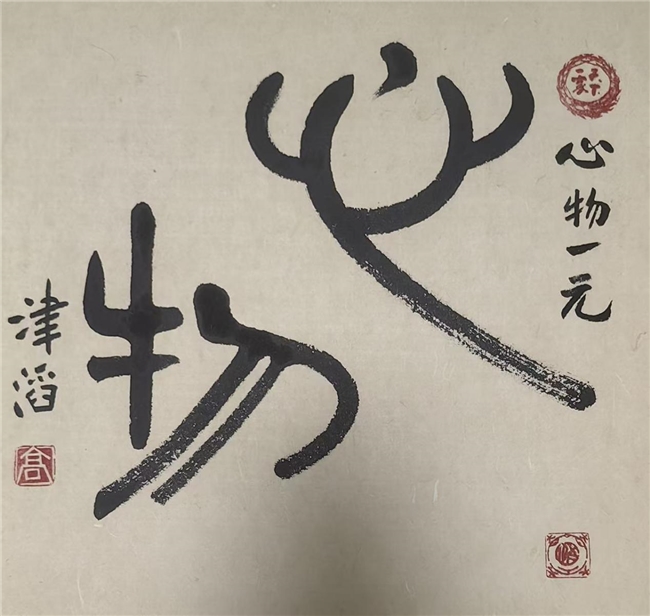 心物
心物一元
津滔
高